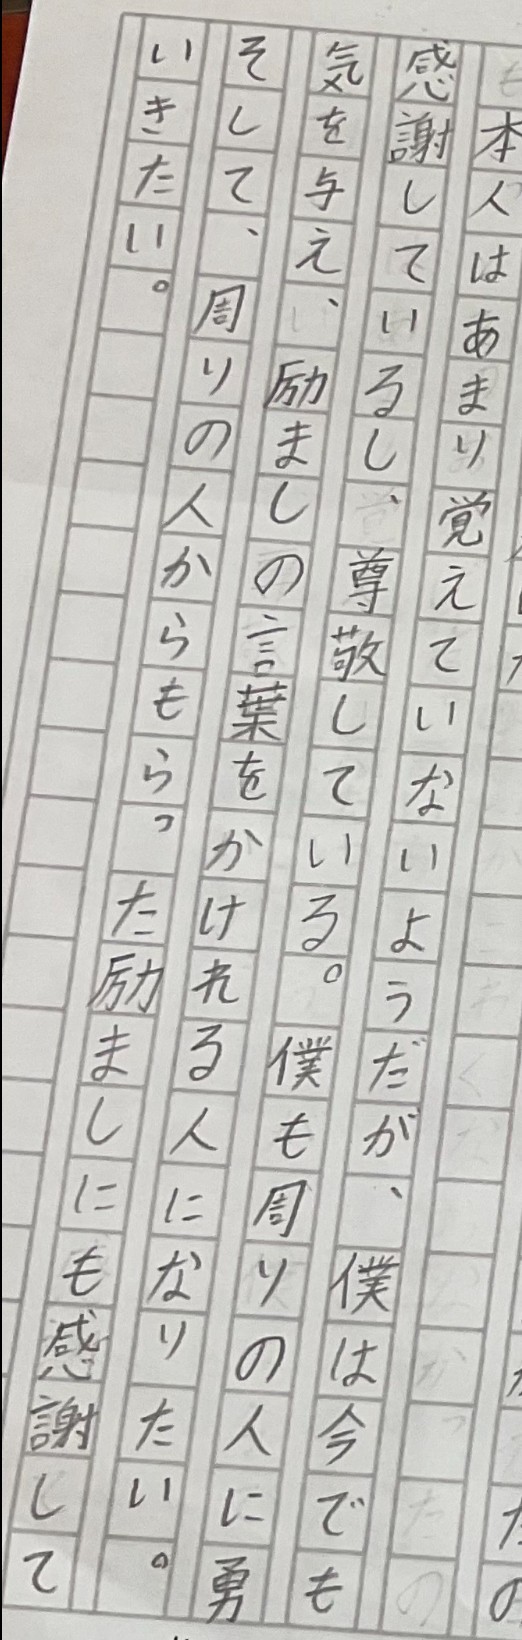 本人はあまり覚えていないようだが、僕は今でも
感謝しているし、尊敬している。僕も周りの人に勇
気を与え、励ましの言葉をかけれる人になりたい。
そして、周りの人からもらった励ましにも感謝して
いきたい。